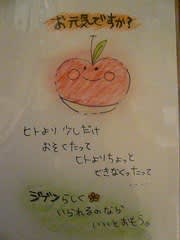 お元気ですか?
ヒトより少しだけ
おそくたって
ヒトよりちょっと
できなくったって
....
ジブンらしく
いられるのなら
いいとおもう。